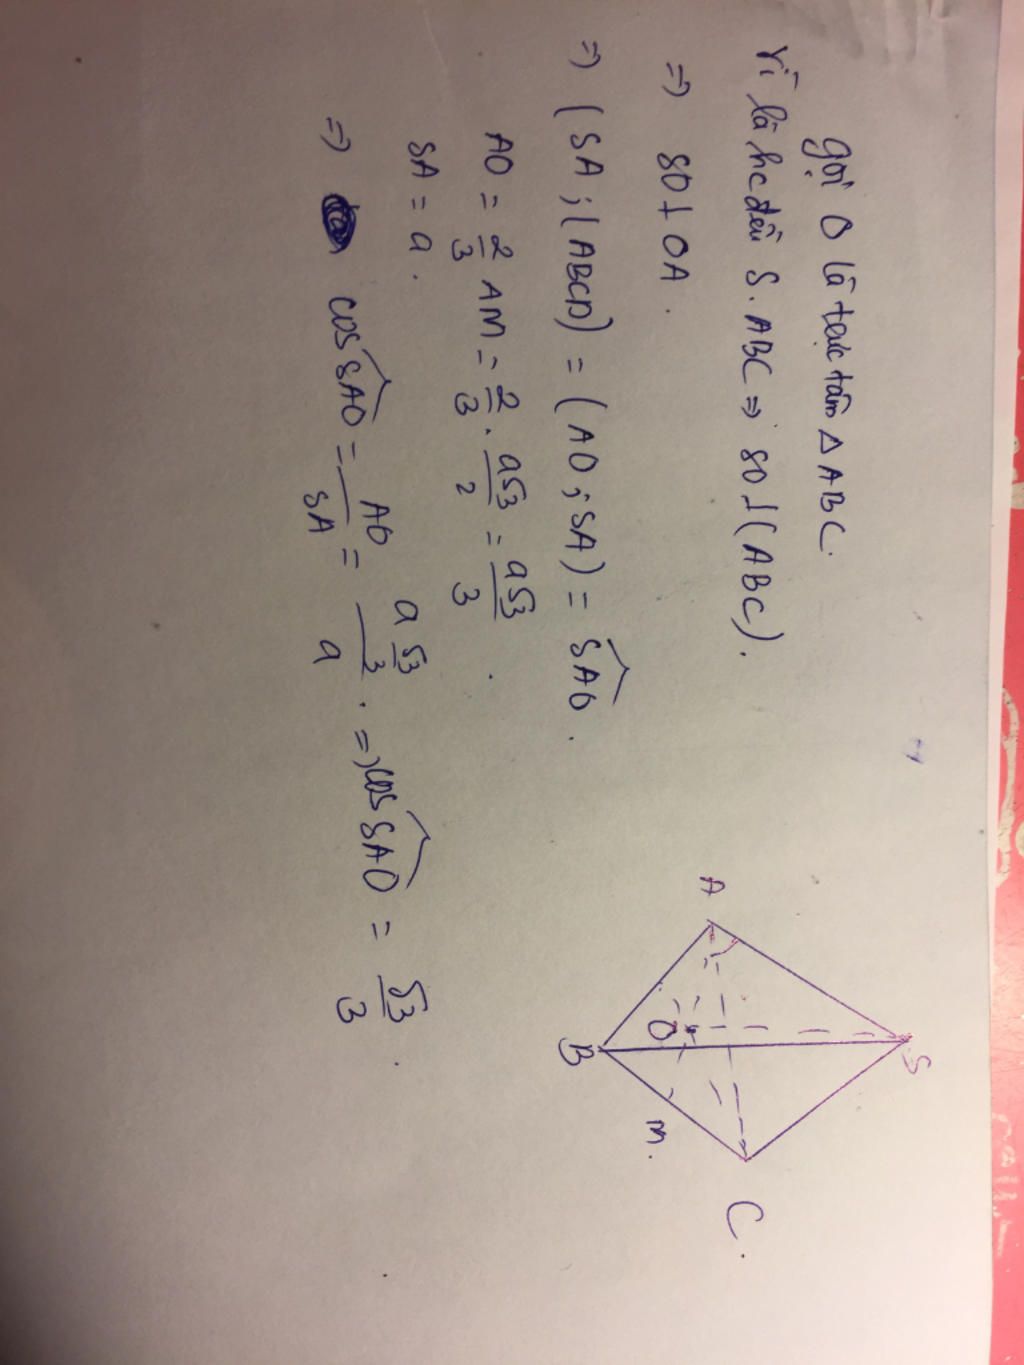 gọi O là trực tâm △ABC.
Vì là hc đều S.ABC => SO⊥(ABC).
=> SO⊥OA.
=> (SA;(ABCD) = (AO;SA) = \widehat{SAO}.
AO = \frac{2}{3} AM = \frac{2}{3} . \frac{a√3}{2} = \frac{a√3}{3}.
SA = a.
=> cos \widehat{SAO} = \frac{AO}{SA} = \frac{a\frac{√3}{3}}{a}. => cos \widehat{SAO} = \frac{√3}{3}.
S
A
O
B
M.
C.